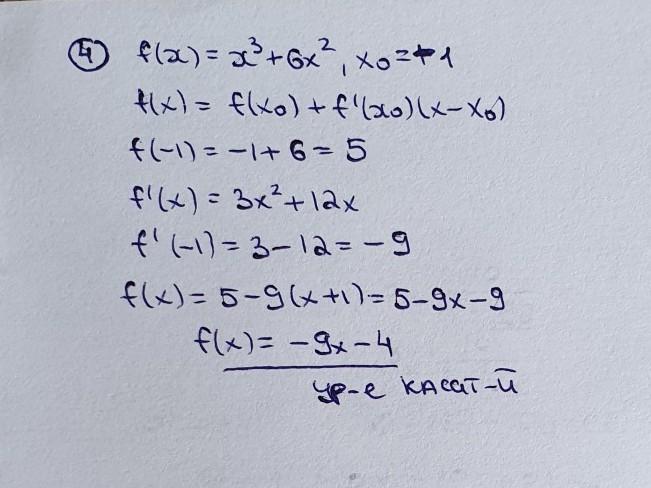 ④ f(x) = x³+6x², x₀=-1
f(x) = f(x₀) + f'(x₀)(x-x₀)
f(-1) = -1+6 = 5
f'(x) = 3x²+12x
f'(-1) = 3-12 = -9
f(x) = 5-9(x+1) = 5-9x-9
f(x) = -9x-4
ур-е касат-й